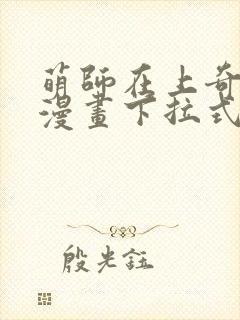 萌師在上奇
漫畫下拉式
殷光鈺